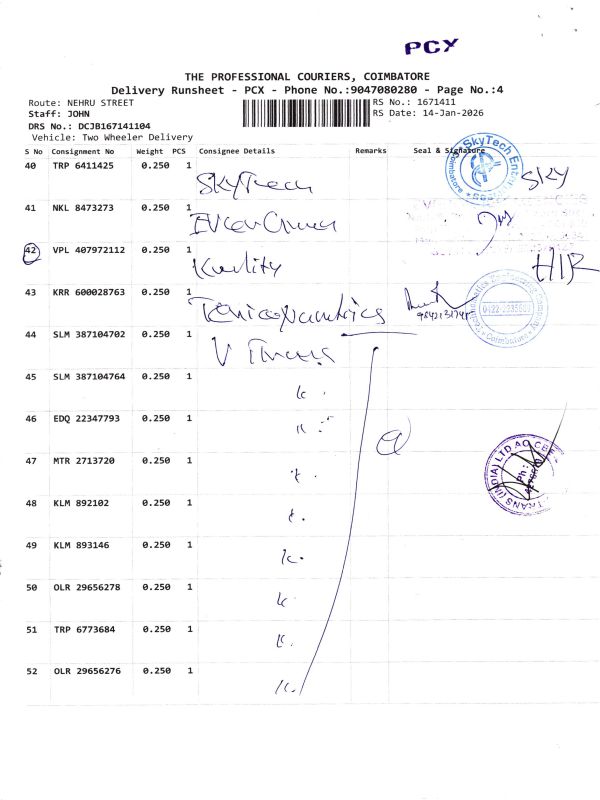 PCX
THE PROFESSIONAL COURIERS, COIMBATORE
Delivery Runsheet - PCX - Phone No.:9047080280 - Page No.:4
Route: NEHRU STREET RS No.: 1671411
Staff: JOHN RS Date: 14-Jan-2026
DRS No.: DCJB167141104
Vehicle: Two Wheeler Delivery
S No Consignment No Weight PCS Consignee Details Remarks Seal & Signature
40 TRP 6411425 0.250 1
SkyTech SKY
41 NKL 8473273 0.250 1
42 VPL 407972112 0.250 1
Kwality
43 KRR 600028763 0.250 1
44 SLM 387104702 0.250 1
V Trans
45 SLM 387104764 0.250 1
46 EDQ 22347793 0.250 1
47 MTR 2713720 0.250 1
48 KLM 892102 0.250 1
49 KLM 893146 0.250 1
50 OLR 29656278 0.250 1
51 TRP 6773684 0.250 1
52 OLR 29656276 0.250 1